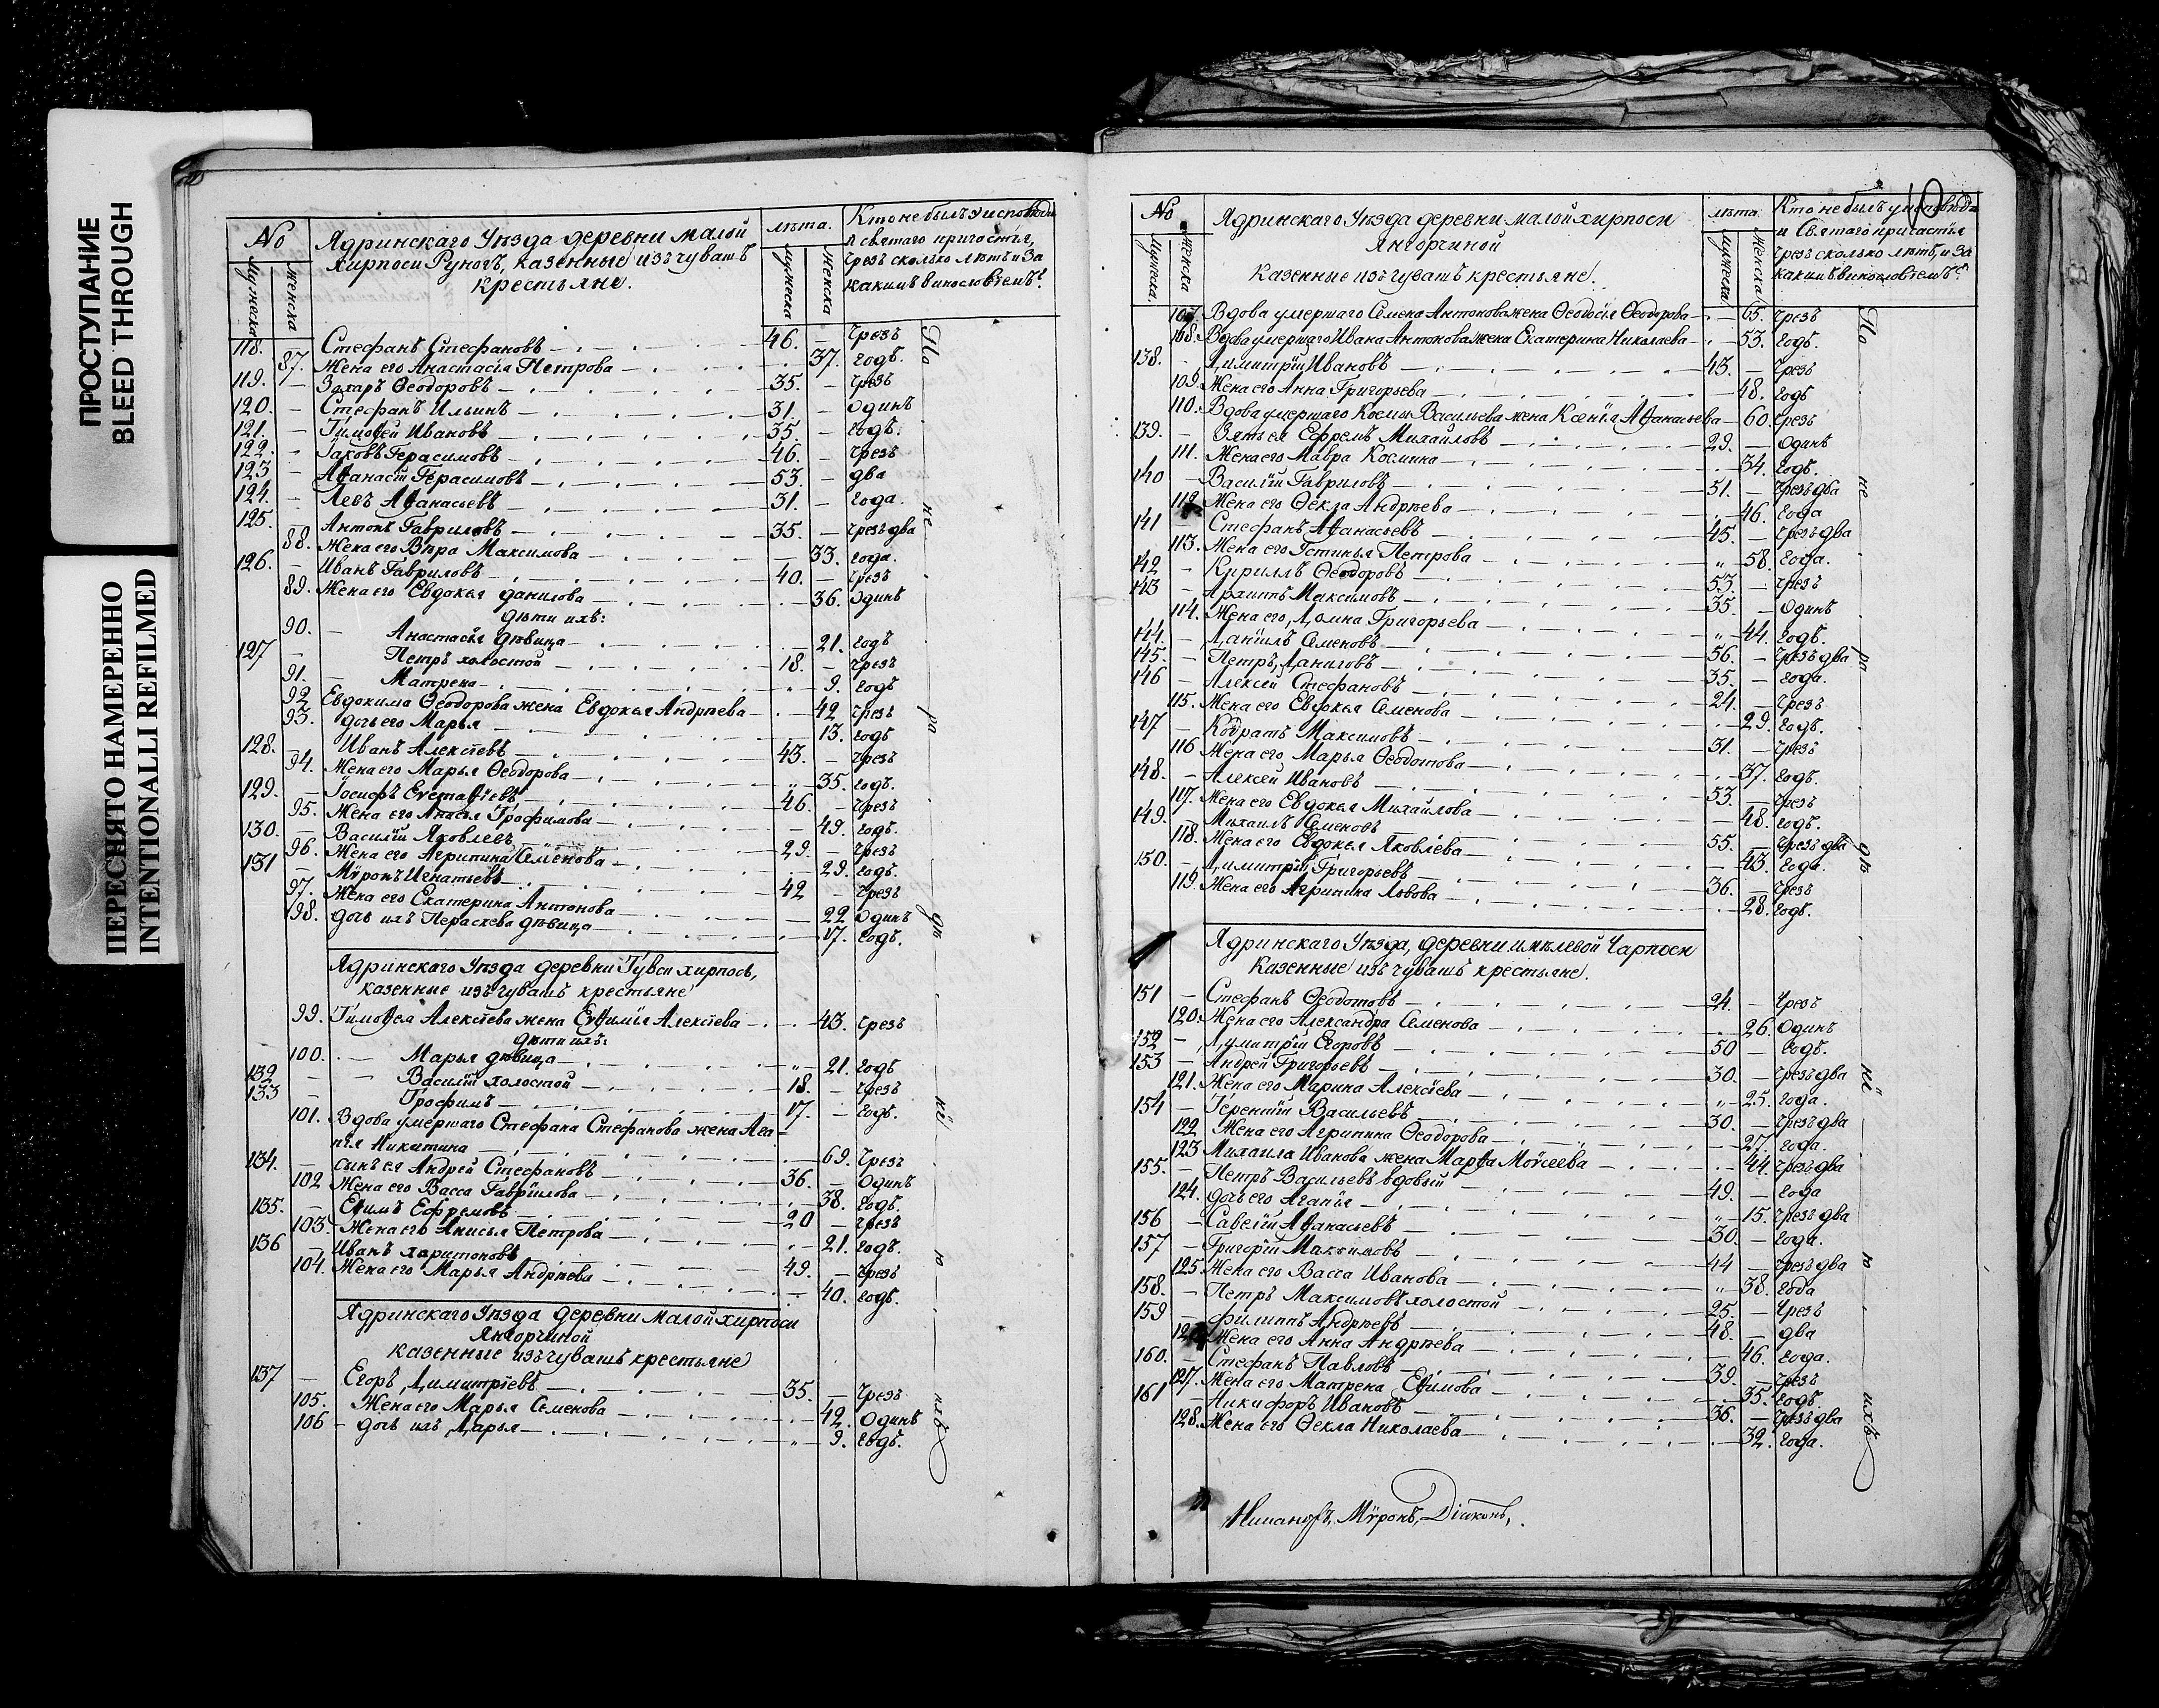 ПРОСТУПАНИЕ
BLEED THROUGH
ПЕРЕСНЯТО НАМЕРЕННО
INTENTIONALLI REFILMED
No
Мужеска
Женска
Ядринскаго Уѣзда деревни малой
Хирпоси Руногъ, казенные изъ чувашъ
крестьяне.
лѣта.
Мужеска
Женска
Кто не былъ у исповѣди
и святаго причастія,
чрезъ сколько лѣтъ и за
какимъ винословіемъ?
118. – Стефанъ Стефановъ 46. – чрезъ
87. Жена его Анастасія Петрова 37. годъ.
119. – Захаръ Ѳеодоровъ 35. – чрезъ
120. – Стефанъ Ильинъ 31. – одинъ
121. – Тимоѳей Ивановъ 35. – годъ.
122. – Іаковъ Герасимовъ 46. – чрезъ
123 – Аѳанасій Герасимовъ 53. – два
124. – Левъ Аѳанасьевъ 31. – года.
125. Антонъ Гавриловъ 35. – чрезъ два
88. Жена его Вѣра Максимова – 33. года.
126. – Иванъ Гавриловъ 40. – чрезъ
89. Жена его Евдокья Данилова 36. одинъ
дѣти ихъ:
90. – Анастасья дѣвица 21. годъ
127 – Петръ холостой 18. – чрезъ
91. – Матрена „ 9. годъ
92 Евдокима Ѳеодорова жена Евдокья Андрѣева – 42 чрезъ
93. дочь его Марья 13. годъ
128. – Иванъ Алексѣевъ 43. – чрезъ
94. Жена его Марья Ѳеодорова „ 35. годъ.
129. – Іосифъ Евстаѳіевъ 46. – чрезъ
95. Жена его Анисья Трофимова – 49. годъ.
130. – Василій Яковлевъ 29. – чрезъ
96. Жена его Агрипина Семенова 29. годъ.
131 – Мѵронъ Игнатьевъ 42 чрезъ
97. Жена его Екатерина Антонова – 22 одинъ
98. дочь ихъ Пераскева дѣвица 17. годъ.
Ядринскаго Уѣзда деревни Тувси хирпось,
казенные изъ чувашъ крестьяне
99. Тимоѳея Алексѣева жена Евѳимія Алексѣева – 43. чрезъ
дѣти ихъ:
100. – Марья дѣвица „ 21. годъ
132 – Василій холостой 18. – чрезъ
133 – Трофимъ 17. – годъ.
101. Вдова умершаго Стефана Стефанова жена Ага-
пія Никитина 69. чрезъ
134. – сынъ ея Андрей Стефановъ 36. – одинъ
102 Жена его Васса Гаврилова 38. годъ.
135. – Ефимъ Ефремовъ 20 – чрезъ
103. Жена его Анисья Петрова 21. годъ.
136 – Иванъ харитоновъ 49. – чрезъ
104. Жена его Марья Андрѣева 40. годъ.
Ядринскаго Уѣзда деревни малой хирпоси
Янгорчиной
казенные изъ чувашъ крестьяне
137 – Егоръ Димитріевъ 35. – чрезъ
105. Жена его Марья Семенова 42. одинъ
106 – дочь ихъ Дарья „ 9. годъ.
По не ра дѣ нію ихъ
No
Мужеска.
Женска
Ядринскаго Уѣзда деревни малой хирпоси
Янгорчиной
Казенные изъ чувашъ крестьяне.
лѣта
Мужеска
Женска
Кто не былъ у исповѣди
и Святаго причастія
чрезъ сколько лѣтъ, и за
какимъ винословіемъ?
107. Вдова умершаго Семена Антонова жена Ѳеодосія Ѳеодорова – 65. чрезъ
108. Вдова умершаго Ивана Антонова жена Екатерина Николаева – 53. годъ.
138. – Димитрій Ивановъ 43. – чрезъ
109. Жена его Анна Григорьева 48. годъ
110. Вдова умершаго Космы Васильева жена Ксенія Аѳанасьева – 60. чрезъ
139. – Зять ея Ефремъ Михайловъ 29. – одинъ
111. Жена его Мавра Космина 34. годъ.
140 – Василій Гавриловъ 51. – чрезъ два
112. Жена его Ѳекла Андрѣева 46. года
141 – Стефанъ Аѳанасьевъ 45. – чрезъ два
113. Жена его Устинья Петрова „ 58. года.
142 – Кириллъ Ѳеодоровъ 53. – чрезъ
143 – Архипъ Максимовъ 35. – одинъ
114. Жена его, Домна Григорьева „ 44. годъ.
144. – Даніилъ Семеновъ 56. – чрезъ два
145. – Петръ Даниловъ 35. – года.
146 – Алексѣй Стефановъ 24. – чрезъ
115. Жена его Евдокья Семенова 29. годъ.
147 – Кодратъ Максимовъ 31. – чрезъ
116 Жена его Марья Ѳеодотова 37. годъ.
148. – Алексѣй Ивановъ 53. – чрезъ
117. Жена его Евдокья Михайлова – 48. годъ.
149. – Михаилъ Семеновъ 55. – чрезъ два
118. Жена его Евдокья Яковлева – 43. года.
150. – Димитрій Григорьевъ 36. – чрезъ
119. Жена его Агрипина Львова 28. годъ.
Ядринскаго Уѣзда, деревни имѣлевой Чарпоси
Казенные изъ чувашъ крестьяне.
151 – Стефанъ Ѳеодотовъ 24. – чрезъ
120. Жена его Александра Семенова 26. одинъ
152 – Димитрій Егоровъ 50 – годъ.
153 – Андрей Григорьевъ 30. – чрезъ два
121. Жена его Марина Алексѣева „ 25. года.
154 – Терентій Васильевъ 30. – чрезъ два
122 Жена его Агрипина Ѳеодорова 27. года.
123 Михаила Иванова жена Марѳа Моѵсеева – 44. чрезъ два
155. – Петръ Васильевъ вдовый 49. – года
124. дочь его Агапія „ 15. чрезъ два
156 – Савелій Аѳанасьевъ 30. – года.
157 – Григорій Максимовъ 44 – чрезъ два
125. Жена его Васса Иванова „ 38. года
158. – Петръ Максимовъ холостой 25. – чрезъ
159 – Филиппъ Андрѣевъ 48. – два
Жена его Анна Андрѣева 46. года.
160. – Стефанъ Павловъ 39. – чрезъ
127. Жена его Матрена Ефимова 35. годъ.
161 – Никифоръ Ивановъ 36. – чрезъ два
128. Жена его Ѳекла Николаева 32. года.
По не ра дѣ нію ихъ
Мѵронъ, Діяконъ,